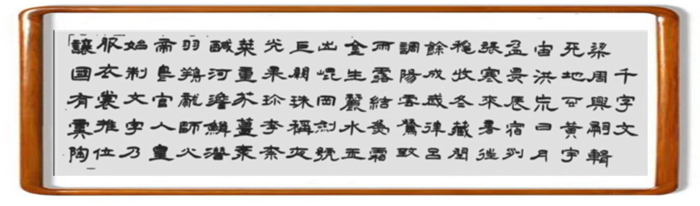 千字文
梁周興嗣輯
天地玄黃宇
宙洪荒日月
盈昃辰宿列
張寒來暑往
穐收冬藏閏
餘成歲律呂
調陽雲騰致
雨露結為霜
金生麗水玉
出崐岡劍號
巨闕珠稱夜
光果珍李柰
菜重芥薑海
鹹河澹鱗潛
羽翔龍師火
帝鳥官人皇
始制文字乃
服衣裳推位
讓國有虞陶